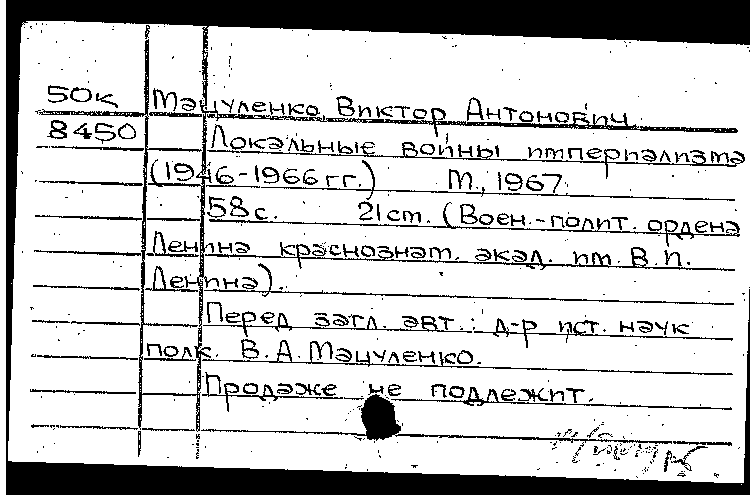 50к Мацуленко, Виктор Антонович.
8450 Локальные войны империализма
(1946-1966 гг.) М., 1967.
58 с. 21 см. (Воен.-полит. ордена
Ленина краснознам. акад. им. В.И.
Ленина).
Перед загл. авт.: д-р ист. наук
полк. В.А. Мацуленко.
Продаже не подлежит.